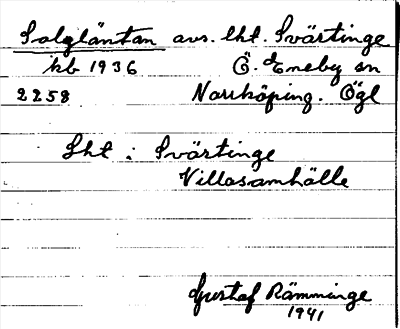 Solgläntan avs. lht. Svärtinge
kb 1936 Ö. Eneby sn
2258 Norrköping. Ögl
Lht : Svärtinge
Villasamhälle
Gustaf Rämminge
1941